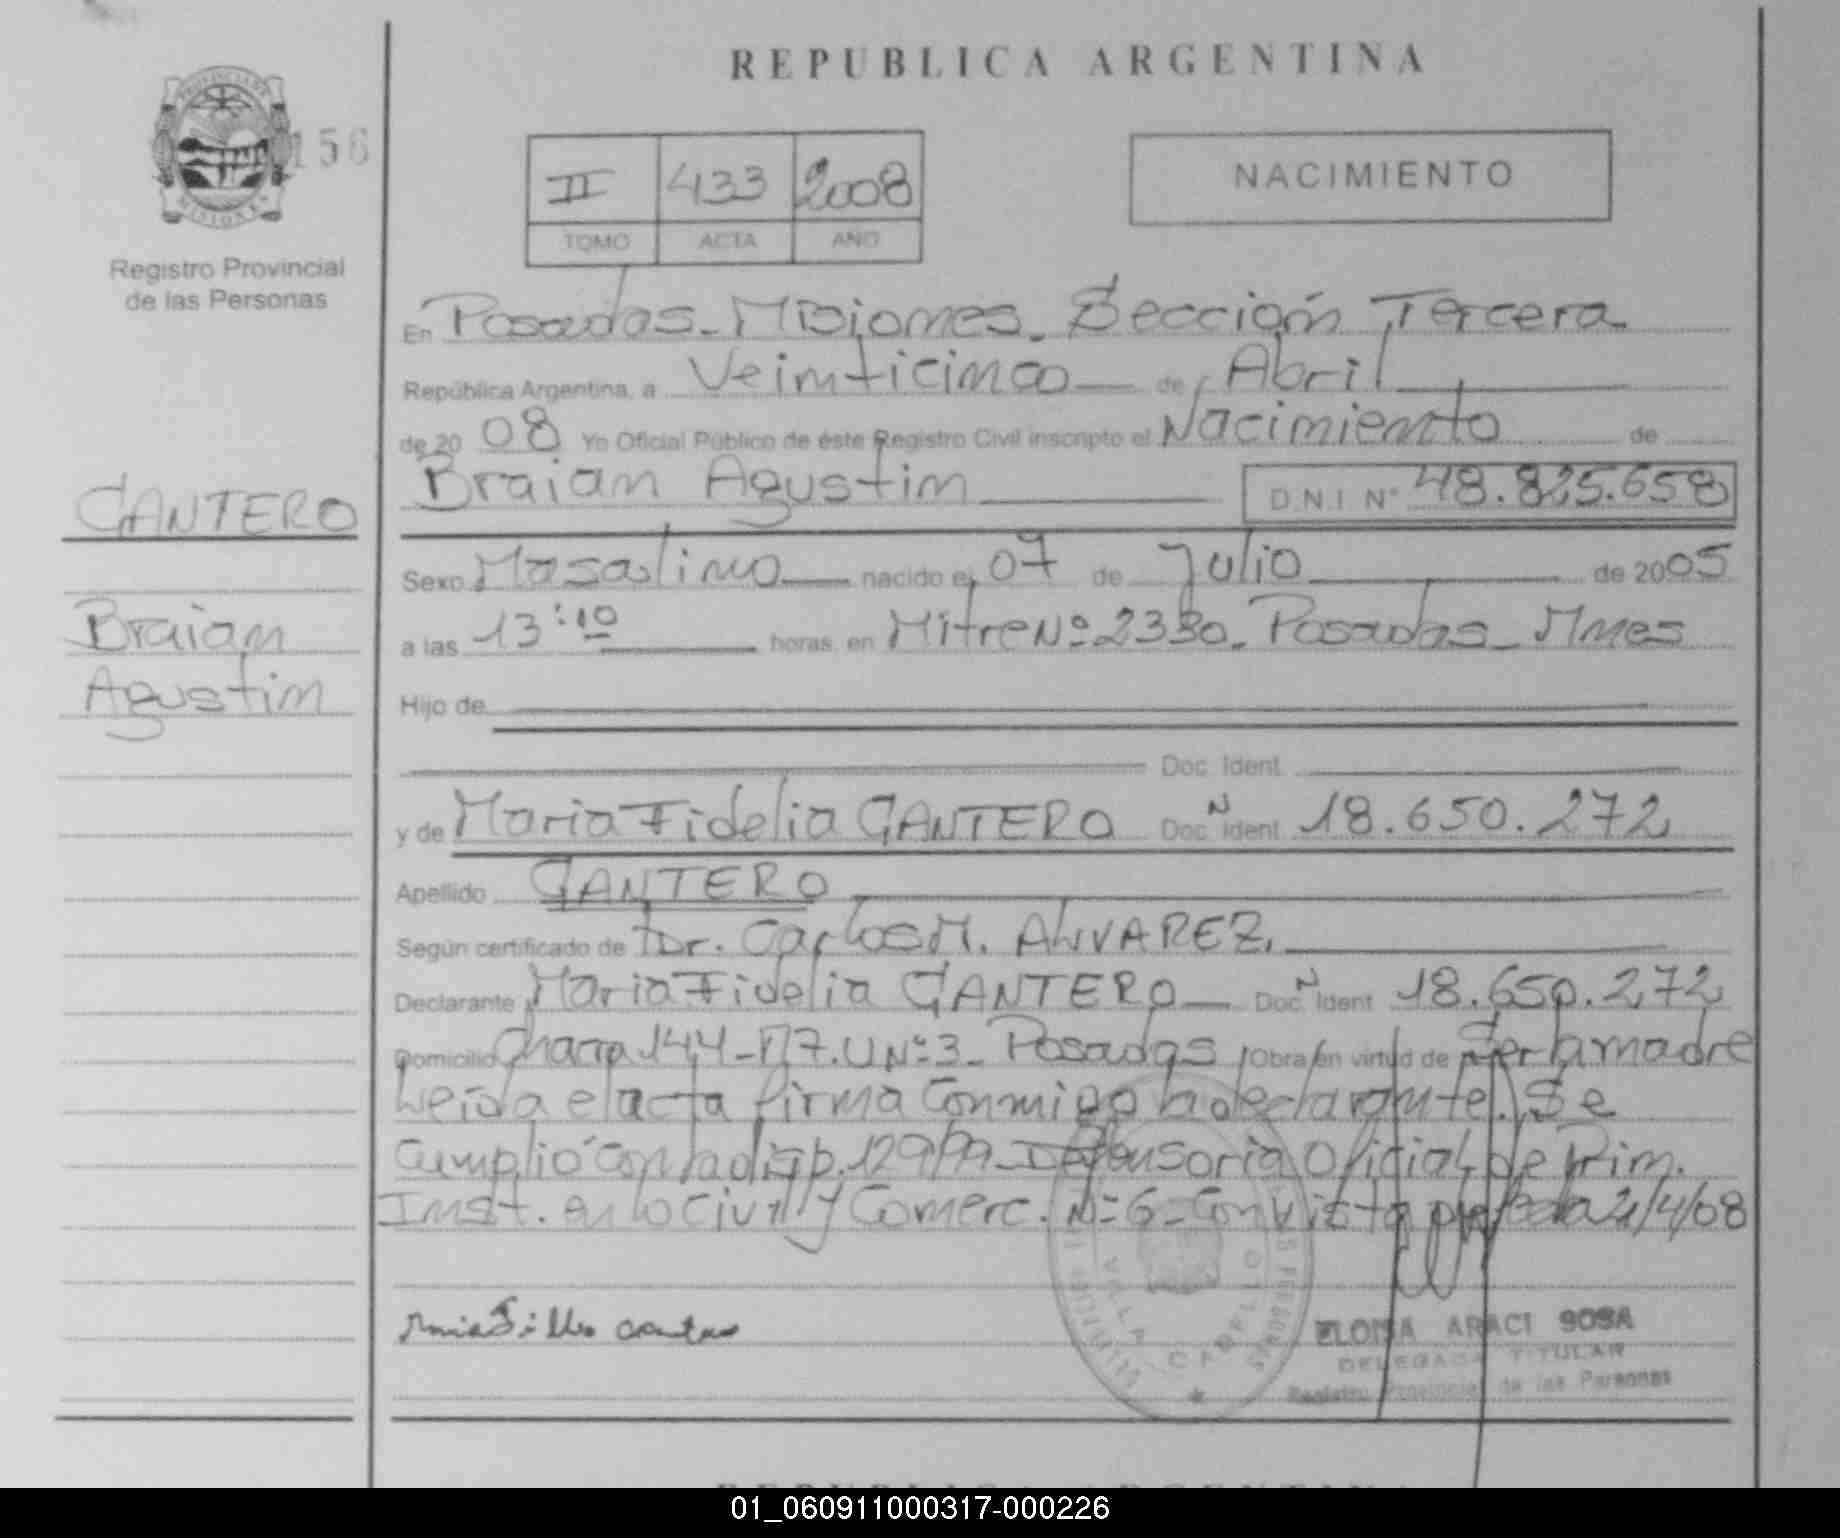 REPUBLICA ARGENTINA
PROVINCIA DE MISIONES
156
Registro Provincial
de las Personas
II 433 2008
TOMO ACTA AÑO
NACIMIENTO
En Posadas - Misiones - Sección Tercera
República Argentina, a Veinticinco de Abril
de 2008 Yo Oficial Público de éste Registro Civil inscripto el Nacimiento de
CANTERO
Braian Agustin D.N.I. Nº 48.825.658
Sexo Masculino nacido el 07 de Julio de 2005
Braian
Agustin
a las 13:10 horas, en Mitre Nº 2330 - Posadas - Mnes
Hijo de
Doc. Ident.
y de Maria Fidelia CANTERO Doc. Ident. N 18.650.272
Apellido CANTERO
Según certificado de Dr. Carlos M. ALVAREZ.
Declarante Maria Fidelia CANTERO Doc. Ident N 18.650.272
Domicilio Chacra 144 - 7. U Nº 3 - Posadas Obra en virtud de ser la madre
Leída el acta firma conmigo la declarante. Se
cumplió con la disp. 129/99 - Defensoria Oficial de Prim.
Inst. en lo Civil y Comerc. Nº 6 - Con Vista 2/4/08
VILLA CABELLO
ELOISA ARACI SOSA
DELEGADA TITULAR
Registro Provincial de las Personas
REPUBLICA ARGENTINA
01_060911000317-000226